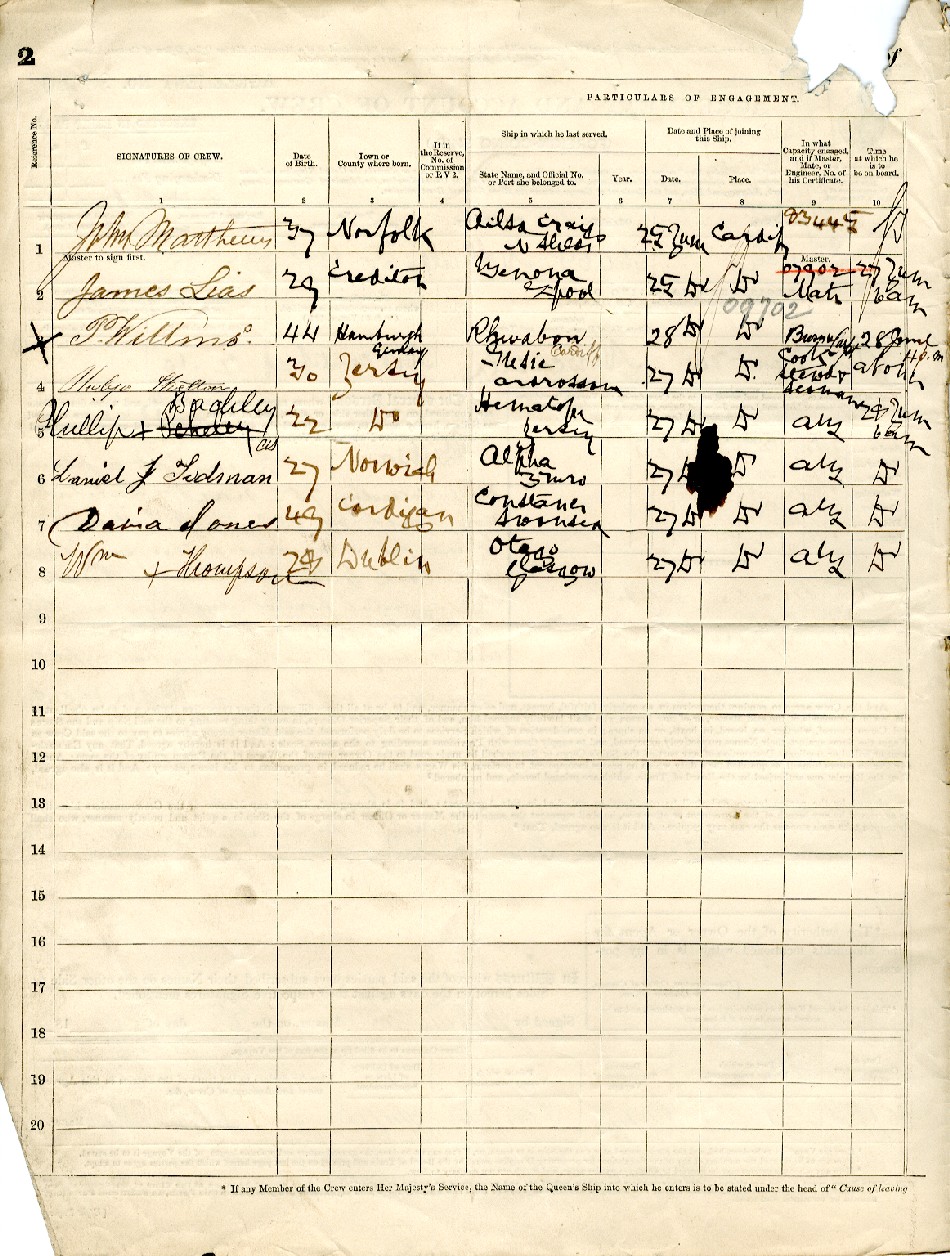 2
PARTICULARS OF ENGAGEMENT.
Reference No.
SIGNATURES OF CREW.
Date of Birth.
Town or County where born.
If in the Reserve, No. of Commission or R V 2.
Ship in which he last served.
State Name, and Official No. or Port she belonged to.
Year.
Date and Place of joining this Ship.
Date.
Place.
In what Capacity engaged, and if Master, Mate, or Engineer, No. of his Certificate.
Time at which he is to be on board.
1 2 3 4 5 6 7 8 9 10
1 John Matthews 37 Norfolk Ailsa Craig N Shields 25 June Cardiff 93445
Master to sign first.
Master.
2 James Lias 29 Crediton 25 Do Do 09702 Mate 27 June 6 am
09702
X P Willms 44 Hamburgh Germany Rhuabon Cardiff 28 Do Do 28 June
4 Philip 30 Jersey Medie Ardrossan 27 Do Do Cook Steward Seaman at once
5 Phillip + Baghley 22 Do Jersey 27 Do Do AB 27 June 6 am
6 Daniel J Tidman 27 Norwich Alpha Truro 27 Do Do AB Do
7 David Jones 49 Cardigan Constance Swansea 27 Do Do AB Do
8 Wm + Thompson 28 Dublin Otago Glasgow 27 Do Do AB Do
9
10
11
12
13
14
15
16
17
18
19
20
* If any Member of the Crew enters Her Majesty's Service, the Name of the Queen's Ship into which he enters is to be stated under the head of "Cause of leaving